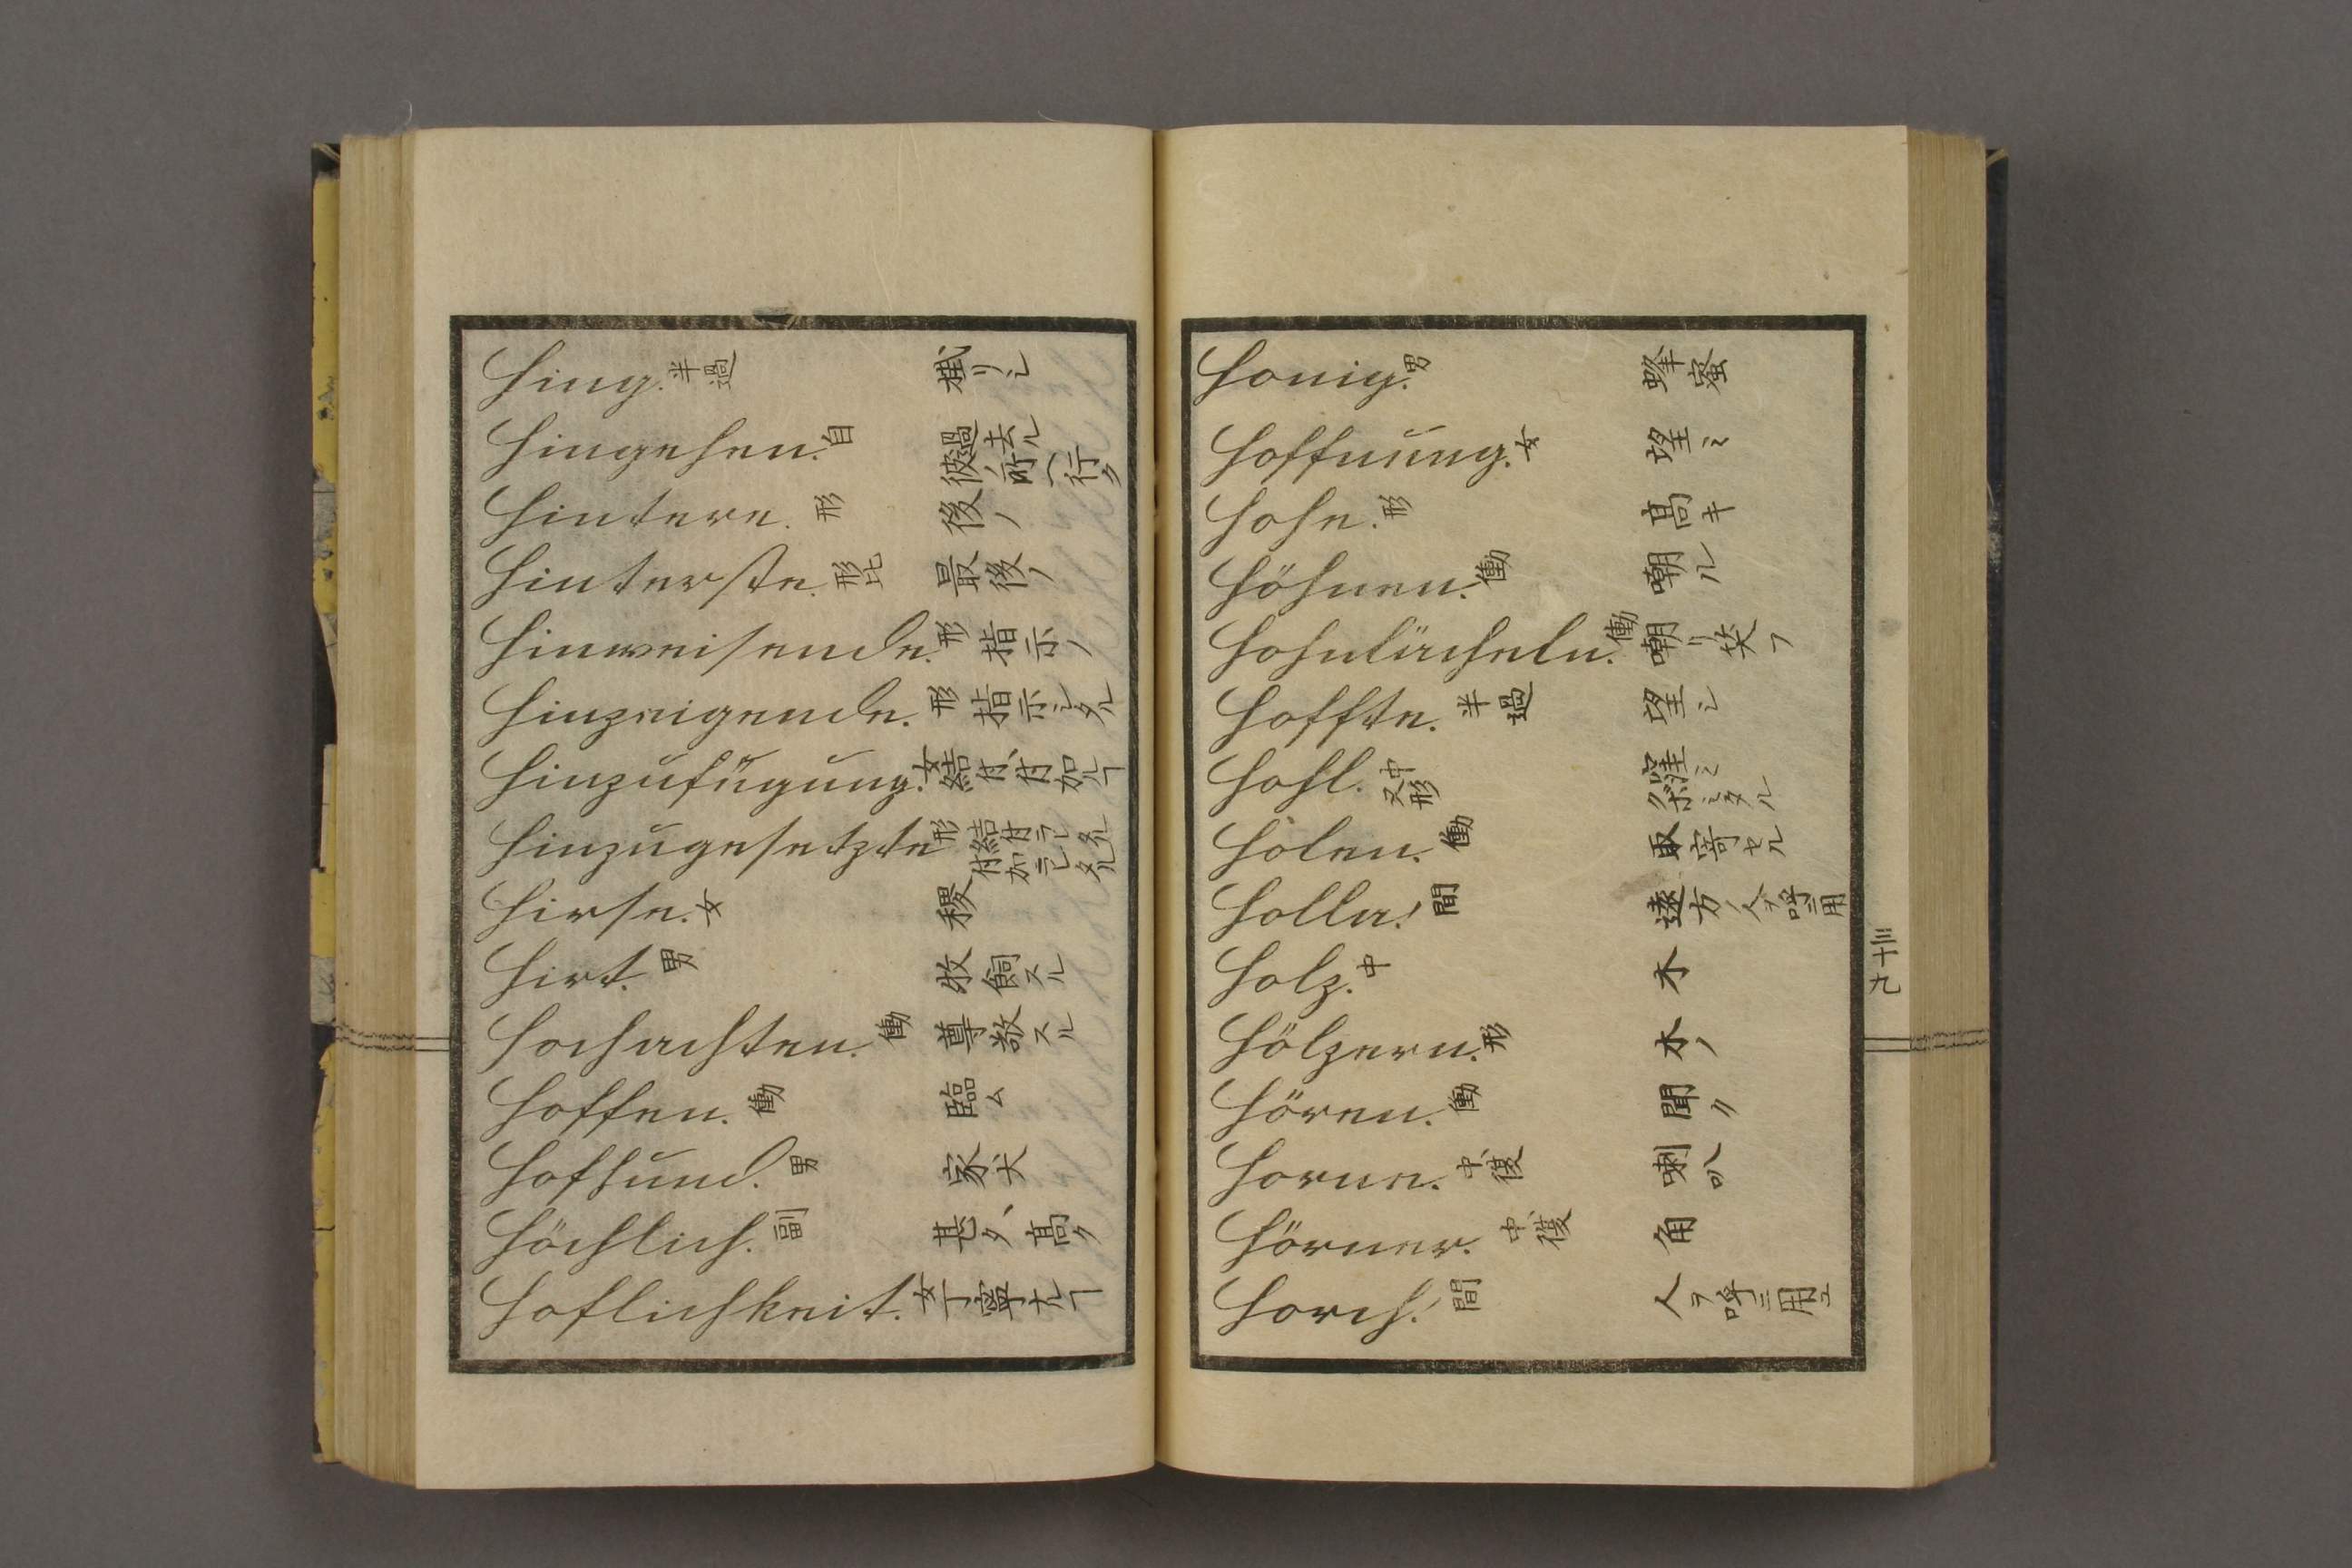 Hing. 半過 掛リシ
Hingehen. 自 過去ル 彼ノ所ヘ行ク
Hintere. 形 後ノ
Hinterste. 形比 最後ノ
Hinweisende. 形 指示ノ
Hinzeigende. 形 指示シタル
Hinzufügung. 女 結付、付加ルヿ
Hinzugesetzte 形 結付ラレタル 付加ラレタル
Hirse. 女 稷
Hirt. 男 牧飼スル
Hochachten. 働 尊敬スル
Hoffen. 働 臨ム
Hofhund. 男 家犬
Höchlich. 副 甚タ、高ク
Hoflichkeit. 女 丁寧ナルヿ
Honig. 男 蜂蜜
Hoffnung. 女 望ミ
Hohe. 形 高キ
Höhnen. 働 嘲ル
Hohnlächeln. 働 嘲リ笑フ
Hoffte. 半過 望シ
Hohl. 中又形 窪ミ クボミタル
Holen. 働 取寄セル
Holla! 間 遠方ノ人ヲ呼ニ用
Holz. 中 木
Hölzern. 形 木ノ
Hören. 働 聞ク
Horne. 中、復 喇叭
Hörner. 中、復 角
Horch! 間 人ヲ呼ニ用ユ
三十九